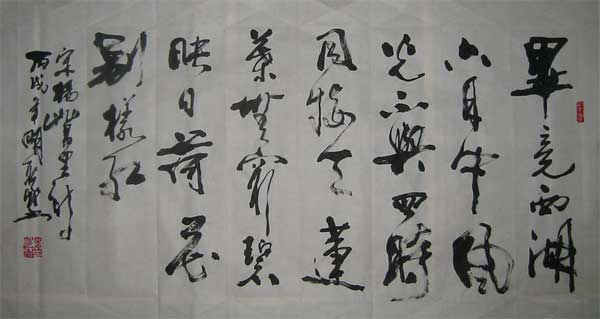 畢竟西湖
六月中風
光不與四時
同接天蓮
葉無窮碧
映日荷花
別樣紅
宋楊萬里詩
丙戌年